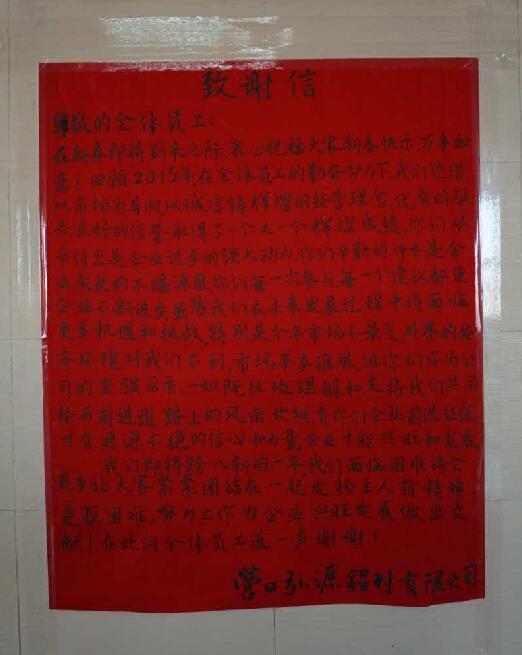 致谢信
尊敬的全体员工:
在新春即将到来之际,衷心祝福大家新春快乐,万事如
意!回顾2015年,在全体员工的勤奋努力下,我们凭借
以市场为导向,以诚信铸辉煌的经营理念,优质的服
务,良好的信誉取得了一个又一个辉煌成绩,你们从
辛付出是企业进步的强大动力,你们辛勤的汗水是企
业成长的不竭源泉你们每一次参与,每一个建议都使
企业不断进步 我们在未来发展过程中将面临
更多机遇和挑战,特别是今年市场不景气,外界的经
济环境对我们不利,市场举步维艰,但你们作为公
司的坚强后盾,一如既往地理解和支持我们共同
经历前进道路上的风雨坎坷,有你们企业前进征途
才有源源不绝的信心和力量,企业才能兴旺和发展
我们即将跨入新的一年,我们面临困难将会
更多让大家紧紧团结在一起发扬主人翁精神,
克服困难,努力工作为企业兴旺发展做出贡
献!在此向全体员工道一声谢谢!
营口弘源铝材有限公司